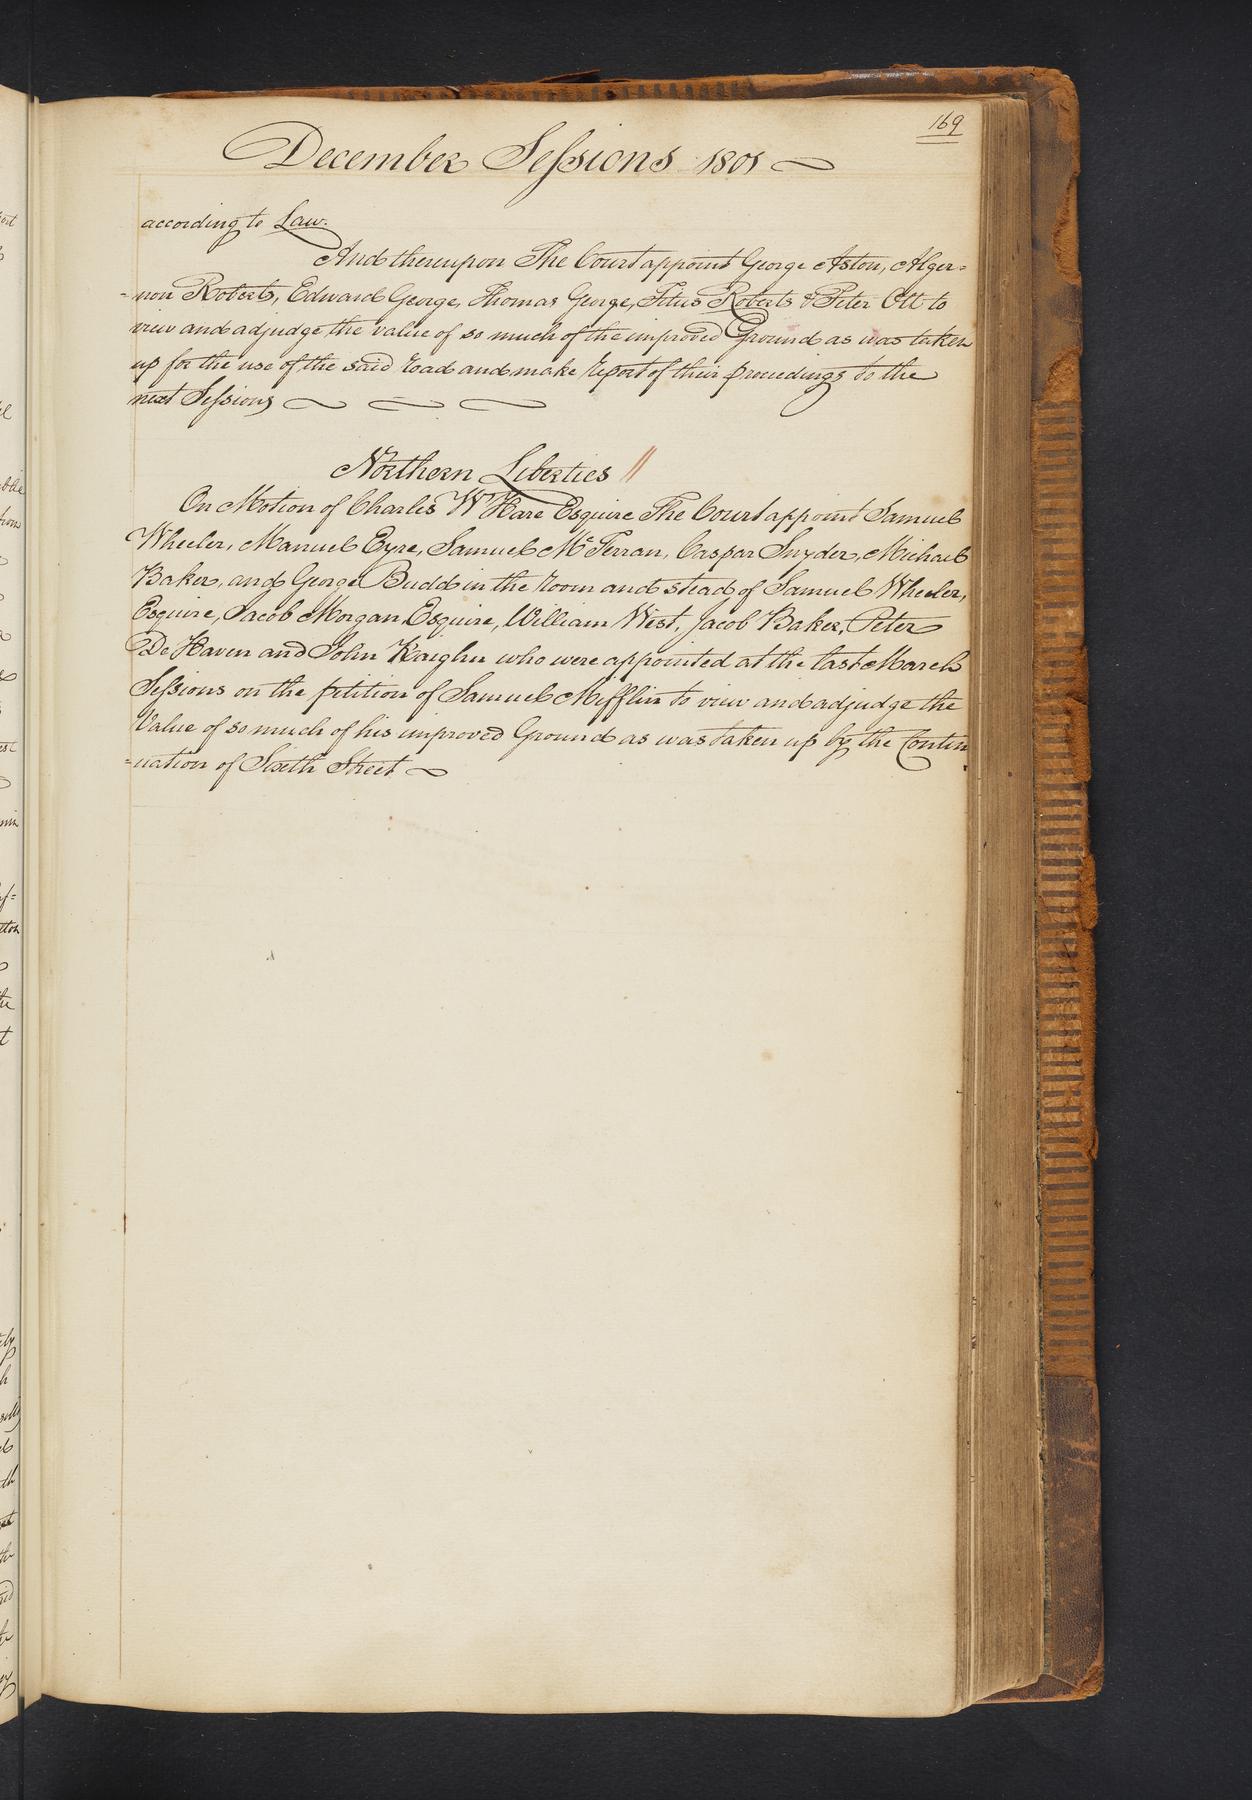 169
December Sessions 1801
according to Law.
And thereupon The Court appoint George Aston, Alger=
=non Roberts, Edward George, Thomas George, Titus Roberts & Peter Ott to
view and adjudge the value of so much of the improved Ground as was taken
up for the use of the said road and make report of their proceedings to the
next Sessions
Northern Liberties //
On Motion of Charles W Hare Esquire The Court appoint Samuel
Wheeler, Manuel Eyre, Samuel McFerran, Caspar Snyder, Michael
Baker, and George Budd in the room and stead of Samuel Wheeler,
Esquire, Jacob Morgan Esquire, William West, Jacob Baker, Peter
De Haven and John Kaighn who were appointed at the last March
Sessions on the petition of Samuel Mifflin to view and adjudge the
Value of so much of his improved Ground as was taken up by the Contin
=uation of Sixth Street